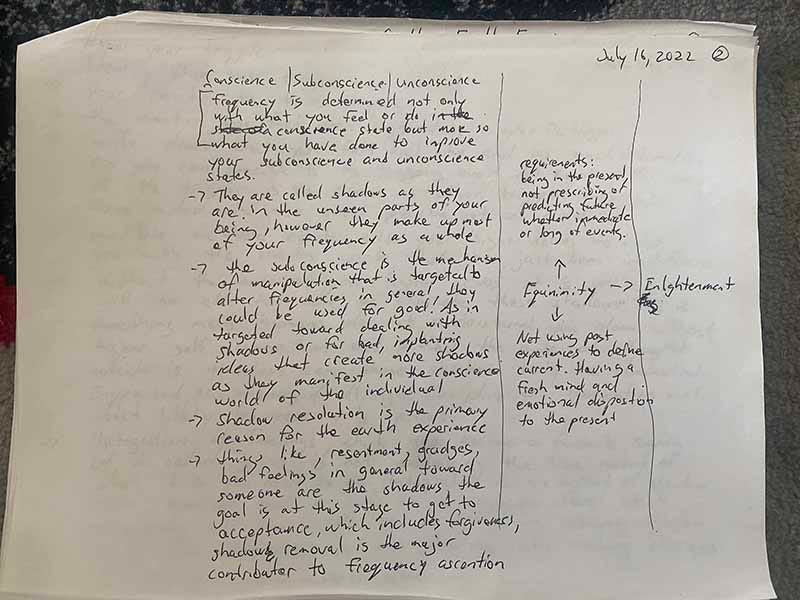 July 16, 2022 ②
Conscience | Subconscience | Unconscionce
frequency is determined not only
with what you feel or do in the
conscience state but more so
what you have done to improve
your subconscience and unconscience
states.
→ They are called shadows as they
are in the unseen parts of your
being, however they make up most
of your frequency as a whole
→ the subconscience is the mechanism
of manipulation that is targeted to
alter frequencies in general they
could be used for good! As in
targeted toward dealing with
shadows or for bad, implanting
ideas that create more shadows
as they manifest in the conscience
world of the individual
→ Shadow resolution is the primary
reason for the earth experience
→ things like, resentment, grudges,
bad feelings in general toward
someone are the shadows the
goal is at this stage to get to
acceptance, which includes forgiveness,
shadow removal is the major
contributor to frequency ascention
requirements:
being in the present,
not prescribing or
predicting future
whether immediate
or long of events.
↑
Equinimity → Enlghtenment
↓
Not using past
experiences to define
current. Having a
fresh mind and
emotional dispostion
to the present